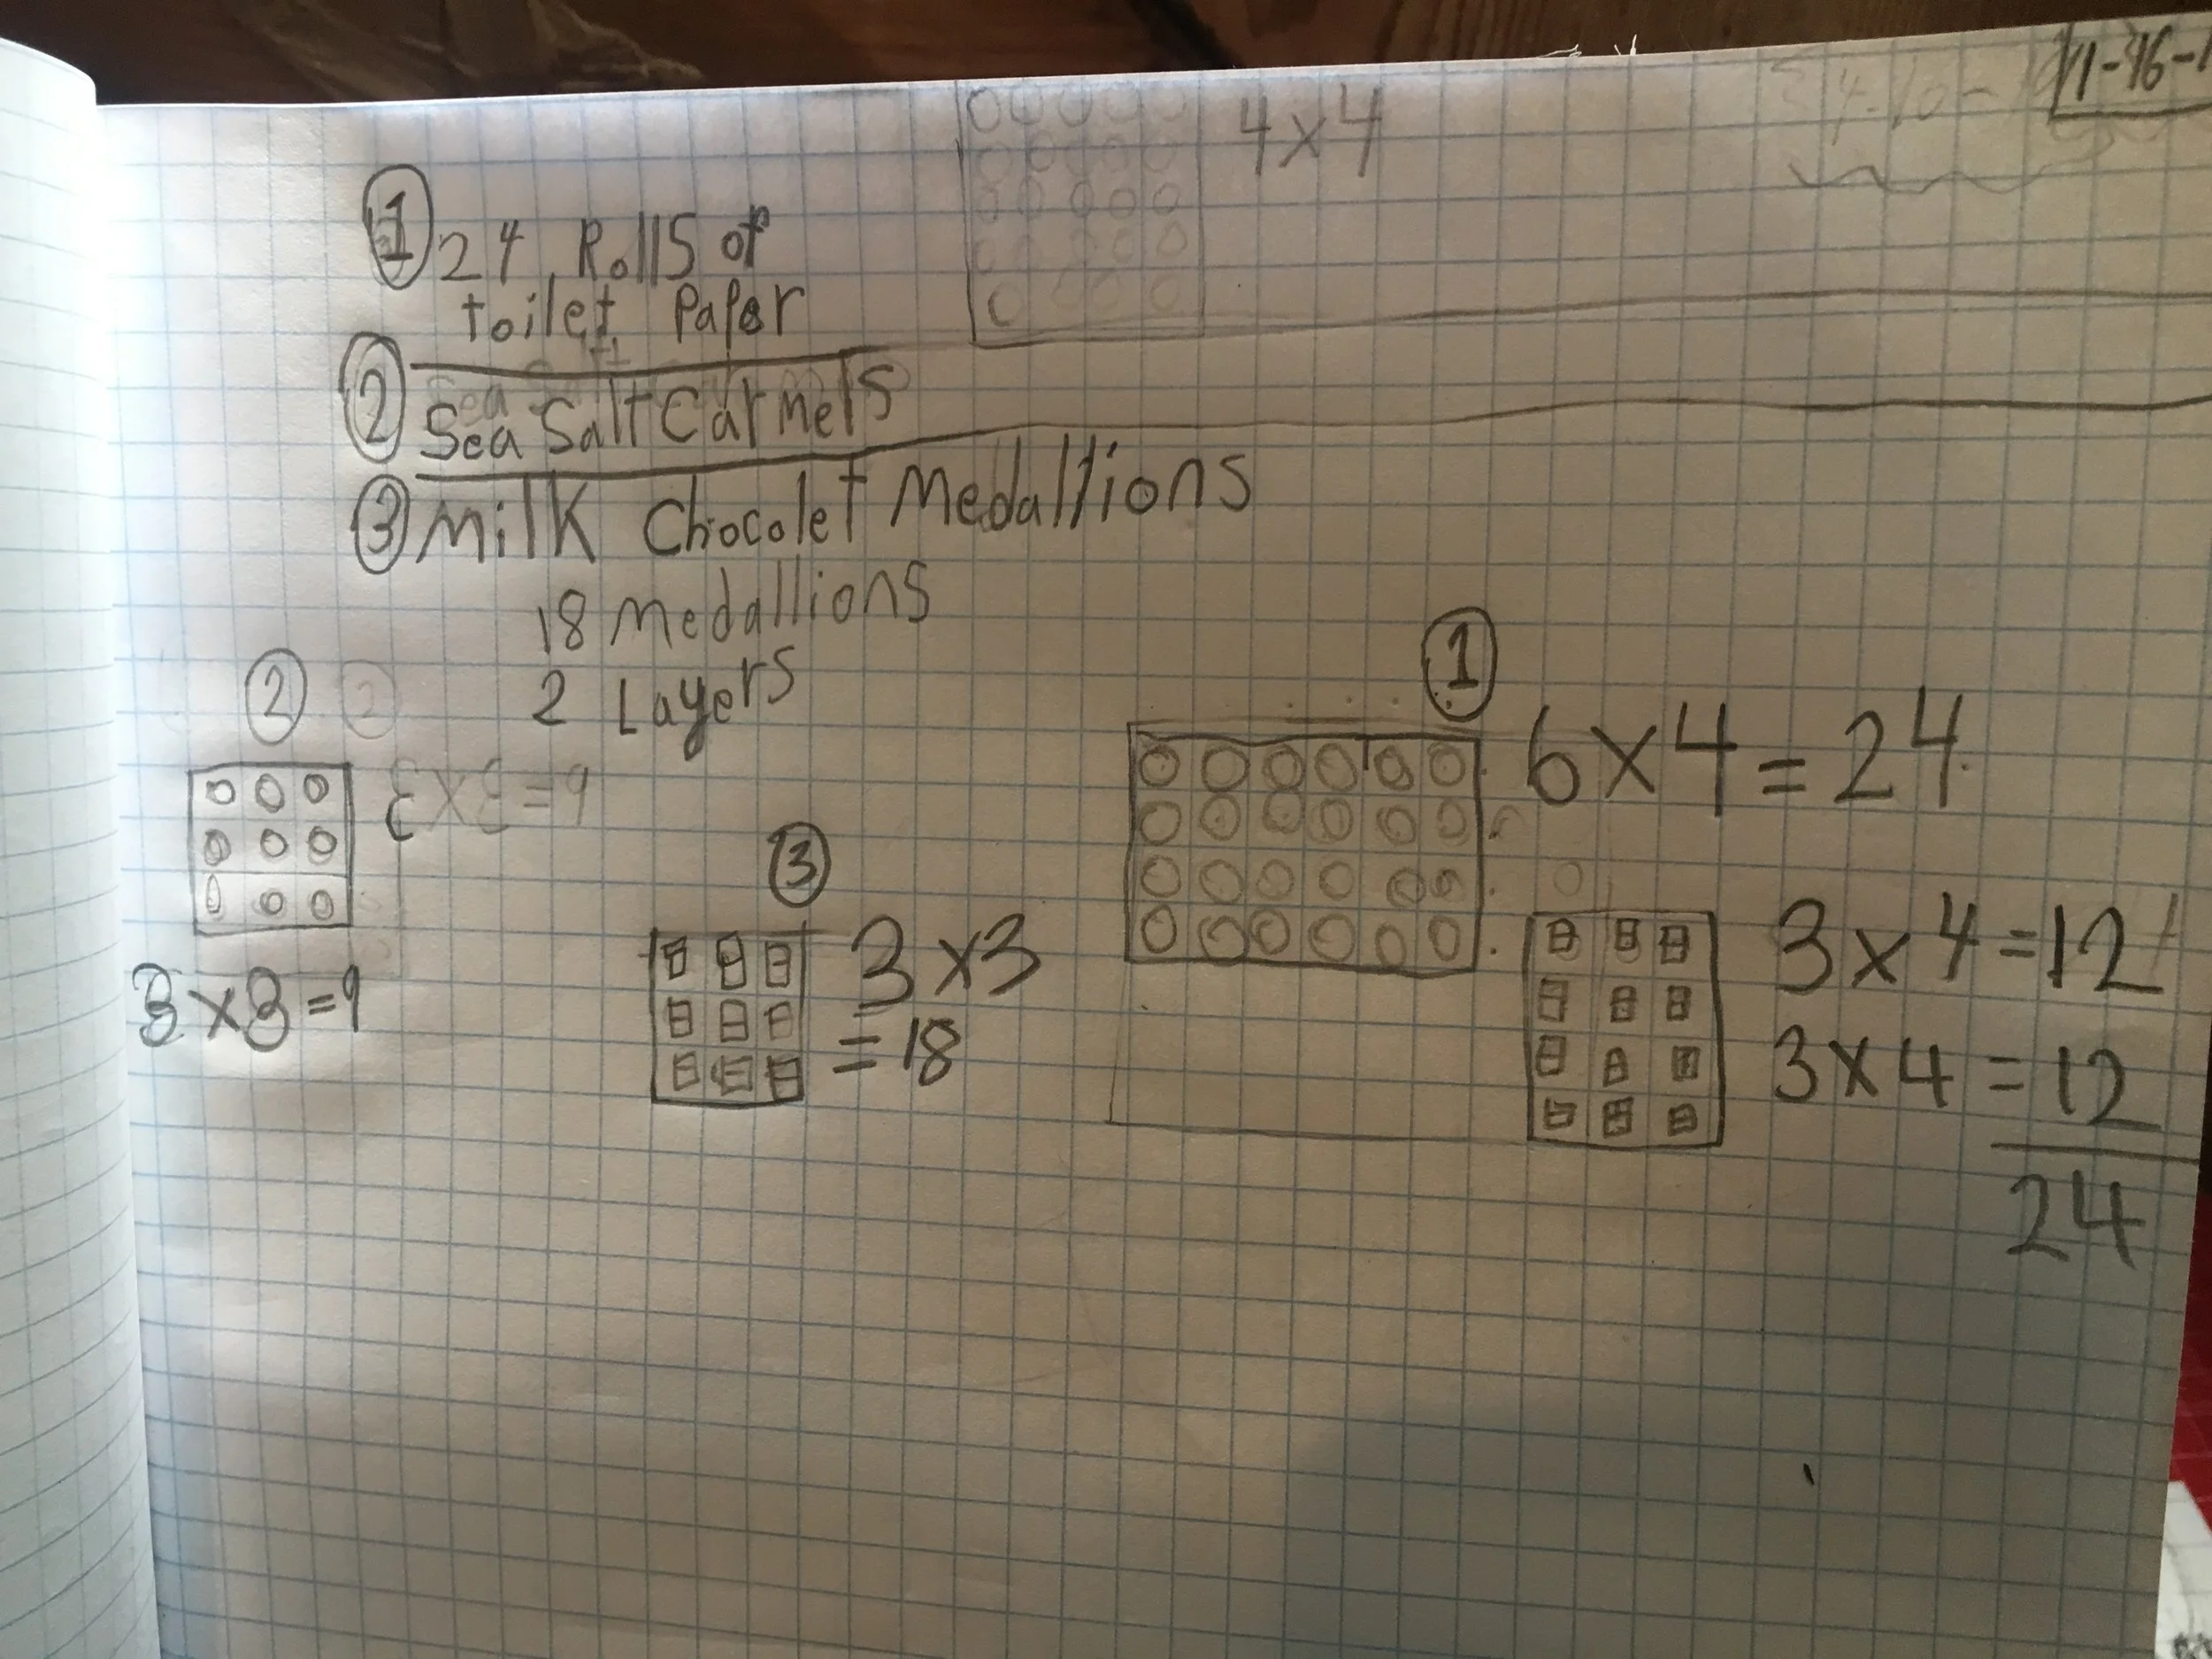 4x4
① 24 Rolls of
toilet Paper
② Sea Salt Carmels
③ Milk Chocolet Medallions
18 Medallions
2 Layers
②
3x3=9
3x3=9
③
3x3
=18
①
6x4=24
3x4=12
3x4=12
24